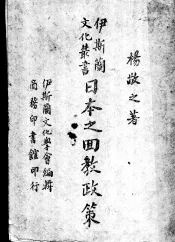 楊敬之著
伊斯蘭
文化叢書
日本之回教政策
伊斯蘭文化學會編輯
商務印書館印行